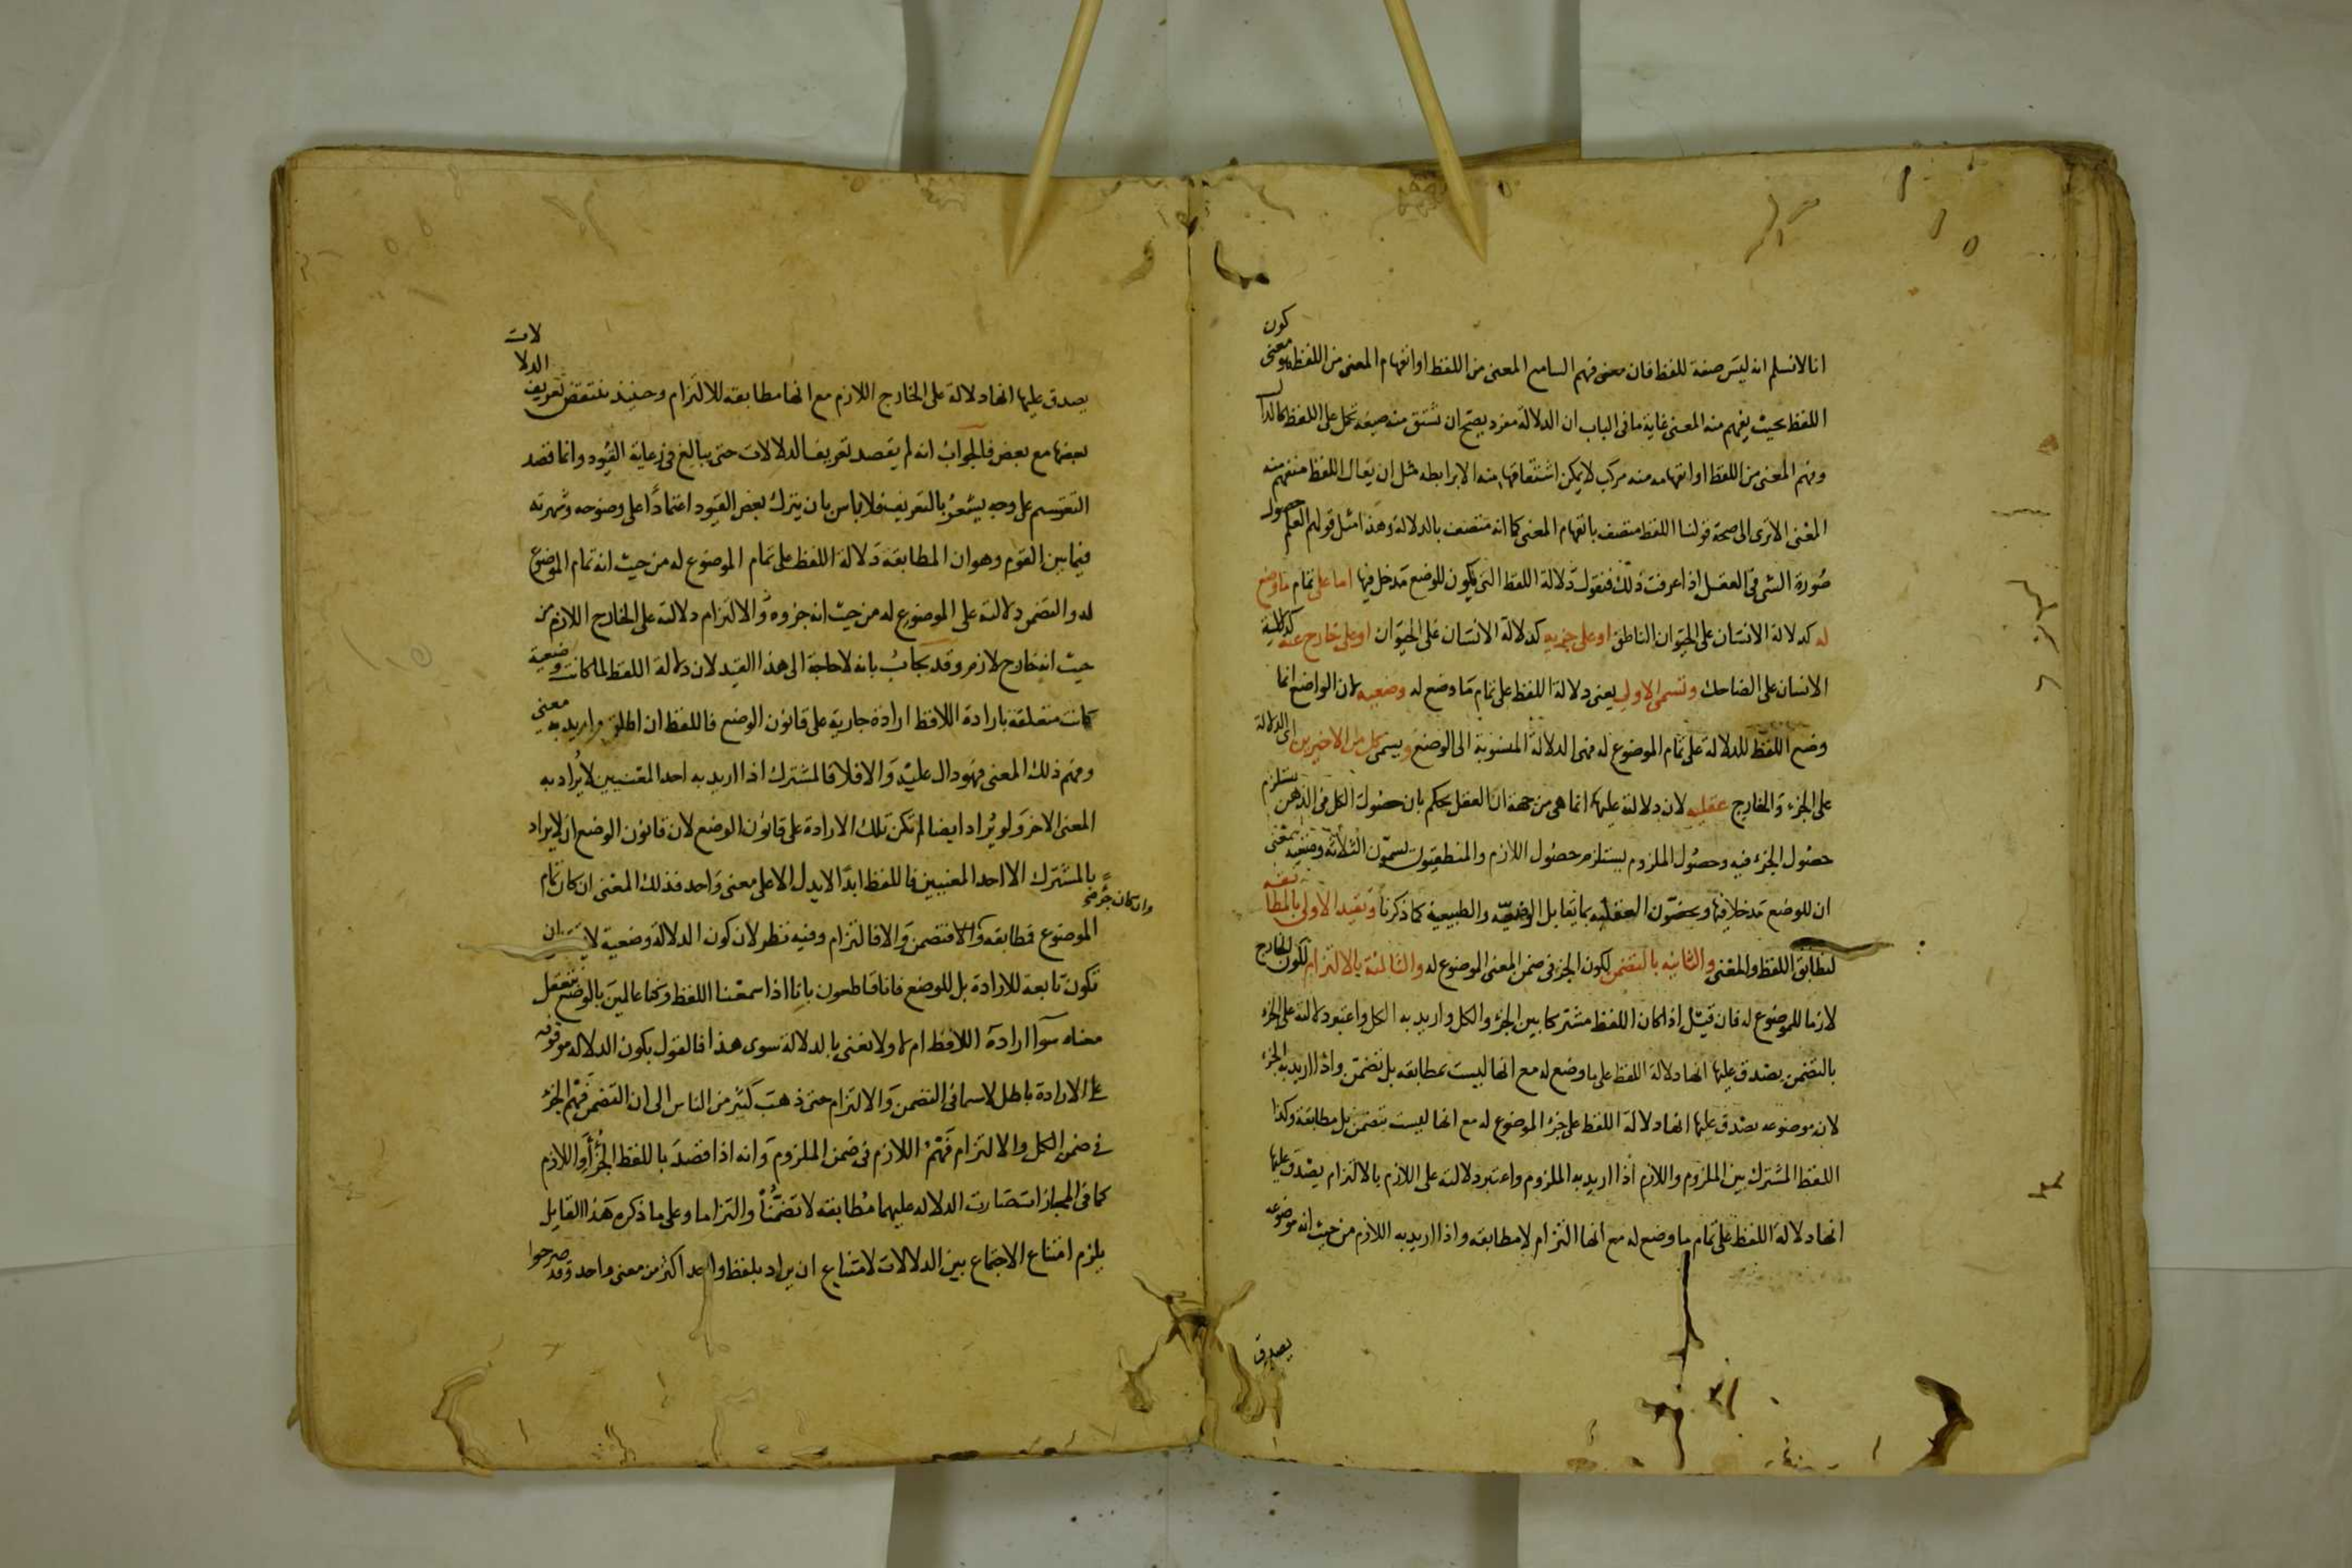 انا لا نسلم انه ليس صفة للفظ فان معنى فهم السامع المعنى من اللفظ او انفهام المعنى من اللفظ هو معنى كون
اللفظ بحيث يفهم منه المعنى غاية ما فى الباب ان الدلالة مفرد يصح ان تشتق منه صيغة تحمل على اللفظ كالدال
وفهم المعنى من اللفظ او انفهامه منه مركب لا يمكن اشتقاقها منه الا برابطه مثل ان يقال اللفظ منفهم منه
المعنى الا ترى الى صحة قولنا اللفظ متصف بانفهام المعنى كما انه متصف بالدلالة وهذا مثل قولهم العلم حصول
صورة الشى فى العقل اذا عرفت ذلك فنقول دلالة اللفظ التى يكون للوضع مدخل فيها اما على تمام ما وضع
له كدلالة الانسان على الحيوان الناطق او على جزيه كدلالة الانسان على الحيوان او على خارج عنه كدلالة
الانسان على الضاحك وتسمى الاولى يعنى دلالة اللفظ على تمام ما وضع له وضعيه لان الواضع انما
وضع اللفظ للدلالة على تمام الموضوع له فهى الدلالة المنسوبة الى الوضع ويسمى كل من الاخيرين اى الدلالة
على الجزء والخارج عقليه لان دلالته عليهما انما هى من جهة ان العقل يحكم بان حصول الكل فى الذهن يستلزم
حصول الجزء فيه وحصول الملزوم يستلزم حصول اللازم والمنطقيون يسمون الثلاثة وضعيه بمعنى
ان للوضع مدخلا فيها ويخصون العقليه بما يقابل الوضعيه والطبيعية كما ذكرنا وتقيد الاولى بالمطابقه
لتطابق اللفظ والمعنى والثانيه بالتضمن لكون الجزء فى ضمن المعنى الموضوع له والثالثة بالالتزام لكون الخارج
لازما للموضوع له فان قيل اذا كان اللفظ مشتركا بين الجزء والكل واريد به الكل واعتبر دلالته على الجزء
بالتضمن يصدق عليها انها دلالة اللفظ على ما وضع له مع انها ليست بمطابقه بل تضمن واذا اريد به الجزء
لانه موضوعه يصدق عليها انها دلالة اللفظ على جزء الموضوع له مع انها ليست بتضمن بل مطابقة وكذا
اللفظ المشترك بين الملزوم واللازم اذا اريد به الملزوم واعتبر دلالته على اللازم بالالتزام يصدق عليها
انها دلالة اللفظ على تمام ما وضع له مع انها التزام لا مطابقه واذا اريد به اللازم من حيث انه موضوعه
يصدق
يصدق عليها انها دلالة على الخارج اللازم مع انها مطابقه لا التزام وحينئذ ينتقض تعريف الدلالات
بعضها مع بعض فالجواب انه لم يقصد تعريف الدلالات حتى يبالغ فى رعاية القيود وانما قصد
التقسيم على وجه يشعر بالتعريف فلا باس بان يترك بعض القيود اعتمادا على وضوحه وشهرته
فيما بين القوم وهو ان المطابقة دلالة اللفظ على تمام الموضوع له من حيث انه تمام الموضوع
له والتضمن دلالته على الموضوع له من حيث انه جزوه والالتزام دلالته على الخارج اللازم من
حيث انه خارج لازم وقد يجاب بانه لا حاجة الى هذا القيد لان دلالة اللفظ لما كانت وضعية
كانت متعلقة بارادة اللافظ ارادة جارية على قانون الوضع فاللفظ ان اطلق واريد به معنى
وفهم ذلك المعنى فهو دال عليه والا فلا فالمشترك اذا اريد به احد المعنيين لا يراد به
المعنى الاخر ولو يراد ايضا لم تكن تلك الارادة على قانون الوضع لان قانون الوضع ان لا يراد
بالمشترك الا احد المعنيين فاللفظ ابدا لا يدل الا على معنى واحد فذلك المعنى ان كان تمام
الموضوع فمطابقه وان كان جزءه فتضمن والا فالتزام وفيه نظر لان كون الدلالة وضعية لا ان
تكون تابعة للارادة بل للوضع فانا قاطعون بانا اذا سمعنا اللفظ وكنا عالمين بالوضع نتعقل
معناه سوا ارادة اللافظ ام لا ولا نعنى بالدلالة سوى هذا فالقول بكون الدلاله موقوفه
على الارادة باطل لاسيما فى التضمن والالتزام حتى ذهب كثير من الناس الى ان التضمن فهم الجزء
فى ضمن الكل والالتزام فهم اللازم فى ضمن الملزوم وانه اذا قصد باللفظ الجزء او اللازم
كما فى المجازات صارت الدلاله عليهما مطابقه لا تضمنا والتزاما وعلى ما ذكره هذا القايل
يلزم امتناع الاجتماع بين الدلالات لامتناع ان يراد بلفظ واحد اكثر من معنى واحد وقد صرحوا